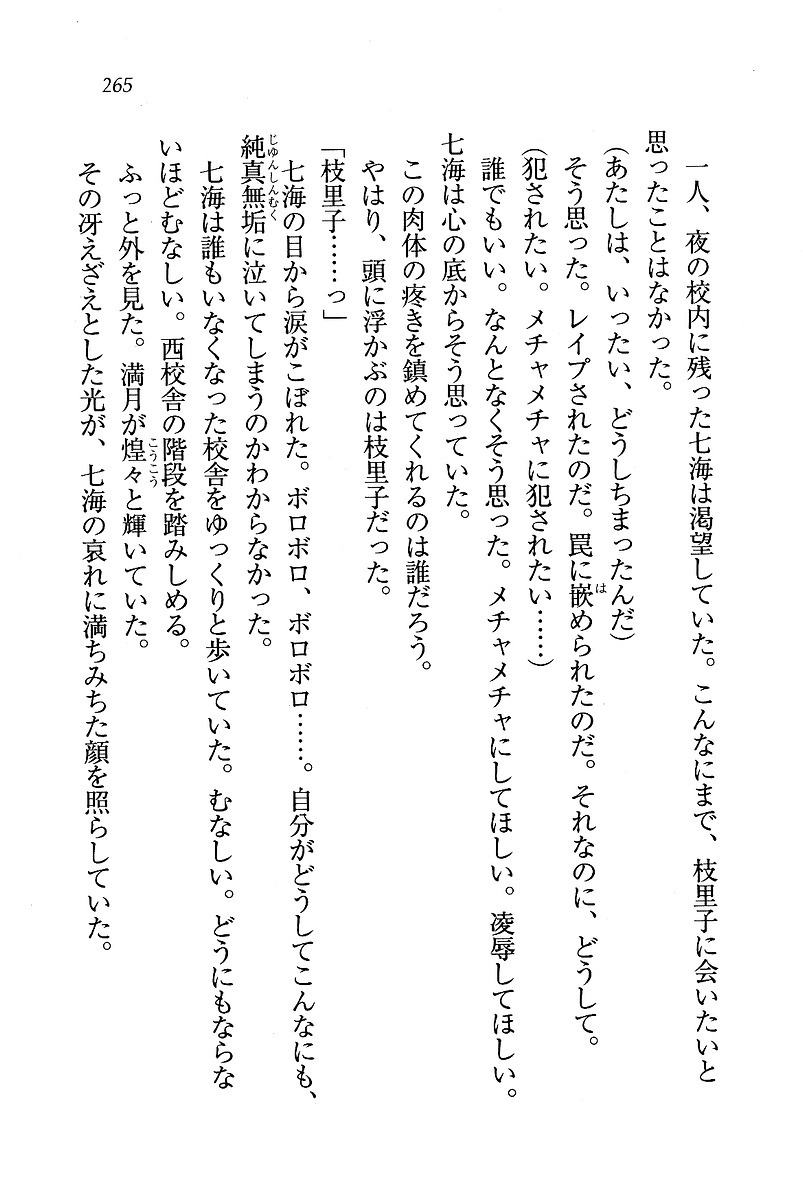 265
一人、夜の校内に残った七海は渇望していた。こんなにまで、枝里子に会いたいと
思ったことはなかった。
(あたしは、いったい、どうしちまったんだ)
そう思った。レイプされたのだ。罠に嵌められたのだ。それなのに、どうして。
(犯されたい。メチャメチャに犯されたい……)
誰でもいい。なんとなくそう思った。メチャメチャにしてほしい。凌辱してほしい。
七海は心の底からそう思っていた。
この肉体の疼きを鎮めてくれるのは誰だろう。
やはり、頭に浮かぶのは枝里子だった。
「枝里子……っ」
七海の目から涙がこぼれた。ボロボロ、ボロボロ……。自分がどうしてこんなにも、
純真無垢に泣いてしまうのかわからなかった。
七海は誰もいなくなった校舎をゆっくりと歩いていた。むなしい。どうにもならな
いほどむなしい。西校舎の階段を踏みしめる。
ふっと外を見た。満月が煌々と輝いていた。
その冴えざえとした光が、七海の哀れに満ちみちた顔を照らしていた。